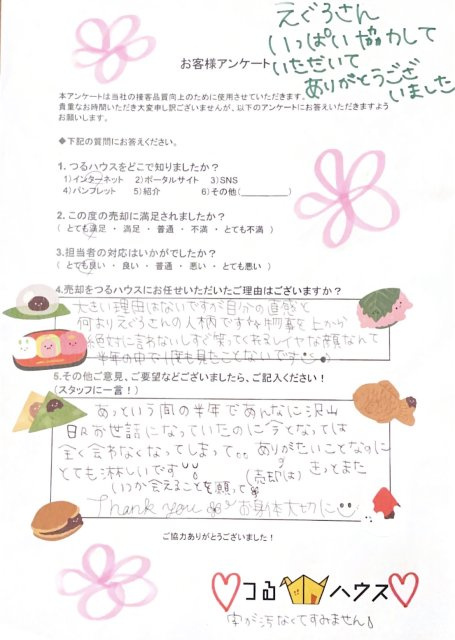 えぐろさん
いっぱい協力して
いただいて
ありがとうござ
いました
お客様アンケート
本アンケートは当社の接客品質向上のために使用させていただきます。
貴重なお時間いただき大変申し訳ございませんが、以下のアンケートにお答えいただきますよう
お願いします。
◆下記の質問にお答えください。
1. つるハウスをどこで知りましたか？
1）インターネット 2）ポータルサイト 3）SNS
4）パンフレット 5）紹介 6）その他(　　　　)
2. この度の売却に満足されましたか？
（ とても満足 ・ 満足 ・ 普通 ・ 不満 ・ とても不満 ）
3. 担当者の対応はいかがでしたか？
（ とても良い ・ 良い ・ 普通 ・ 悪い ・ とても悪い ）
4.売却をつるハウスにお任せいただいたご理由はございますか？
大きい理由はないですが自分の直感と
何よりえぐろさんの人柄です 物事を上から
絶対に言わないしすぐ笑ってくれるしイヤな顔なんて
半年の中で1度も見たことないです
5.その他ご意見、ご要望などございましたら、ご記入ください！
（スタッフに一言！）
あっという間の半年であんなに沢山
日々お世話になっていたのに今となっては
全く会わなくなってしまって。。ありがたいことなのに
とても淋しいです (売却は) きっとまた
いつか会えることを願って
Thank you お身体大切に
ご協力ありがとうございました！
つる ハウス
字が汚なくてすみません